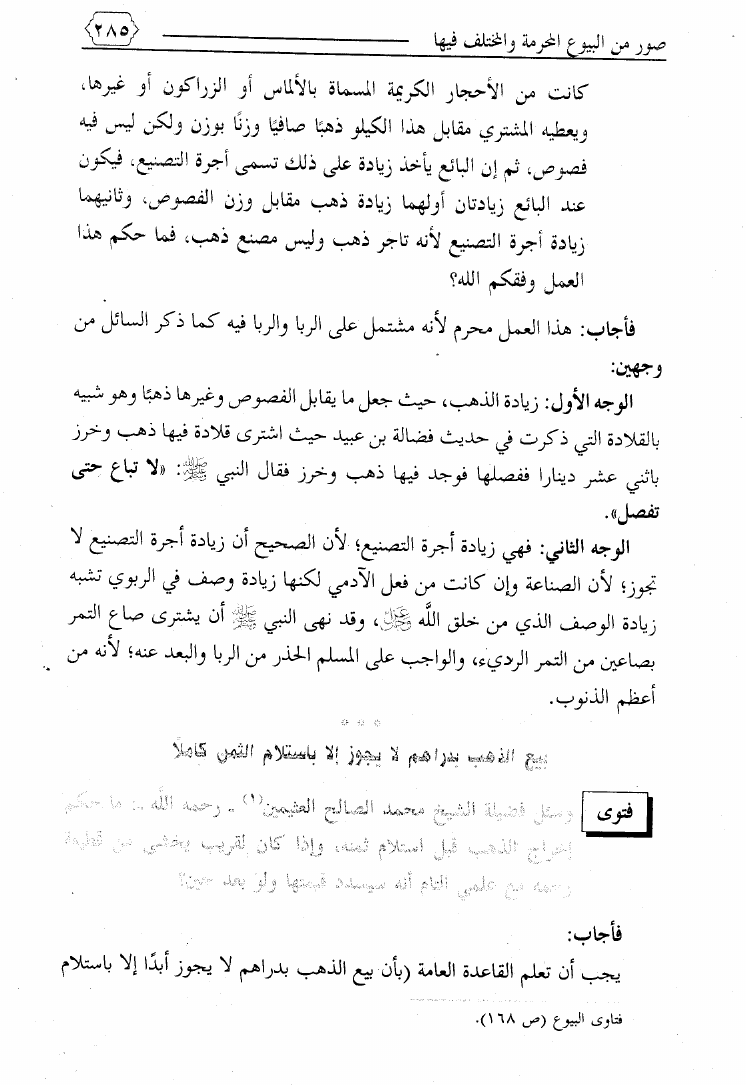 صور من البيوع المحرمة والمختلف فيها ٢٨٥
كانت من الأحجار الكريمة المسماة بالألماس أو الزراكون أو غيرها،
ويعطيه المشتري مقابل هذا الكيلو ذهبًا صافيًا وزنًا بوزن ولكن ليس فيه
فصوص، ثم إن البائع يأخذ زيادة على ذلك تسمى أجرة التصنيع، فيكون
عند البائع زيادتان أولهما زيادة ذهب مقابل وزن الفصوص، وثانيهما
زيادة أجرة التصنيع لأنه تاجر ذهب وليس مصنع ذهب، فما حكم هذا
العمل وفقكم الله؟
فأجاب: هذا العمل محرم لأنه مشتمل على الربا والربا فيه كما ذكر السائل من
وجهين:
الوجه الأول: زيادة الذهب، حيث جعل ما يقابل الفصوص وغيرها ذهبًا وهو شبيه
بالقلادة التي ذكرت في حديث فضالة بن عبيد حيث اشترى قلادة فيها ذهب وخرز
باثني عشر دينارا ففصلها فوجد فيها ذهب وخرز فقال النبي ﷺ: «لا تباع حتى
تفصل».
الوجه الثاني: فهي زيادة أجرة التصنيع؛ لأن الصحيح أن زيادة أجرة التصنيع لا
تجوز؛ لأن الصناعة وإن كانت من فعل الآدمي لكنها زيادة وصف في الربوي تشبه
زيادة الوصف الذي من خلق اللَّه ﷿، وقد نهى النبي ﷺ أن يشترى صاع التمر
بصاعين من التمر الرديء، والواجب على المسلم الحذر من الربا والبعد عنه؛ لأنه من
أعظم الذنوب.
بيع الذهب بدراهم لا يجوز إلا باستلام الثمن كاملاً
فتوى وسئل فضيلة الشيخ محمد الصالح العثيمين(١) ـ رحمه اللَّه ـ: ما حكم
إخراج الذهب قبل استلام ثمنه، وإذا كان لقريب يخشى من قطيعة
رحمه مع علمي التام أنه سيسدد قيمتها ولو بعد حين؟
فأجاب:
يجب أن تعلم القاعدة العامة (بأن بيع الذهب بدراهم لا يجوز أبدًا إلا باستلام
فتاوى البيوع (ص ١٦٨).